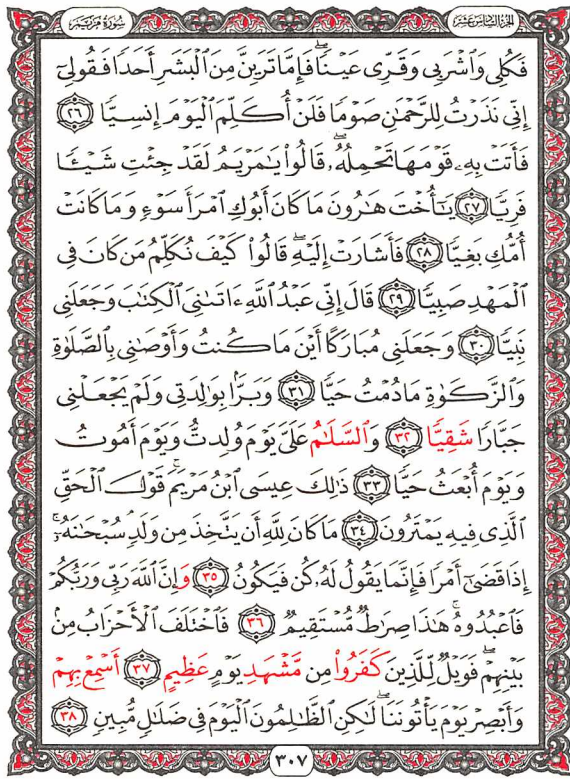 الجزء السادس عشر
سورة مريم
فَكُلِي وَٱشۡرَبِي وَقَرِّي عَيۡنٗاۖ فَإِمَّا تَرَيِنَّ مِنَ ٱلۡبَشَرِ أَحَدٗا فَقُولِيٓ
إِنِّي نَذَرۡتُ لِلرَّحۡمَٰنِ صَوۡمٗا فَلَنۡ أُكَلِّمَ ٱلۡيَوۡمَ إِنسِيّٗا ٢٦
فَأَتَتۡ بِهِۦ قَوۡمَهَا تَحۡمِلُهُۥۖ قَالُواْ يَٰمَرۡيَمُ لَقَدۡ جِئۡتِ شَيۡـٔٗا
فَرِيّٗا ٢٧ يَٰٓأُخۡتَ هَٰرُونَ مَا كَانَ أَبُوكِ ٱمۡرَأَ سَوۡءٖ وَمَا كَانَتۡ
أُمُّكِ بَغِيّٗا ٢٨ فَأَشَارَتۡ إِلَيۡهِۖ قَالُواْ كَيۡفَ نُكَلِّمُ مَن كَانَ فِي
ٱلۡمَهۡدِ صَبِيّٗا ٢٩ قَالَ إِنِّي عَبۡدُ ٱللَّهِ ءَاتَىٰنِيَ ٱلۡكِتَٰبَ وَجَعَلَنِي
نَبِيّٗا ٣٠ وَجَعَلَنِي مُبَارَكًا أَيۡنَ مَا كُنتُ وَأَوۡصَٰنِي بِٱلصَّلَوٰةِ
وَٱلزَّكَوٰةِ مَا دُمۡتُ حَيّٗا ٣١ وَبَرَّۢا بِوَٰلِدَتِي وَلَمۡ يَجۡعَلۡنِي
جَبَّارٗا شَقِيّٗا ٣٢ وَٱلسَّلَٰمُ عَلَيَّ يَوۡمَ وُلِدتُّ وَيَوۡمَ أَمُوتُ
وَيَوۡمَ أُبۡعَثُ حَيّٗا ٣٣ ذَٰلِكَ عِيسَى ٱبۡنُ مَرۡيَمَۖ قَوۡلَ ٱلۡحَقِّ
ٱلَّذِي فِيهِ يَمۡتَرُونَ ٣٤ مَا كَانَ لِلَّهِ أَن يَتَّخِذَ مِن وَلَدٖۖ سُبۡحَٰنَهُۥٓۚ
إِذَا قَضَىٰٓ أَمۡرٗا فَإِنَّمَا يَقُولُ لَهُۥ كُن فَيَكُونُ ٣٥ وَإِنَّ ٱللَّهَ رَبِّي وَرَبُّكُمۡ
فَٱعۡبُدُوهُۚ هَٰذَا صِرَٰطٞ مُّسۡتَقِيمٞ ٣٦ فَٱخۡتَلَفَ ٱلۡأَحۡزَابُ مِنۢ
بَيۡنِهِمۡۖ فَوَيۡلٞ لِّلَّذِينَ كَفَرُواْ مِن مَّشۡهَدِ يَوۡمٍ عَظِيمٍ ٣٧ أَسۡمِعۡ بِهِمۡ
وَأَبۡصِرۡ يَوۡمَ يَأۡتُونَنَا لَٰكِنِ ٱلظَّٰلِمُونَ ٱلۡيَوۡمَ فِي ضَلَٰلٖ مُّبِينٖ ٣٨
٣٠٧